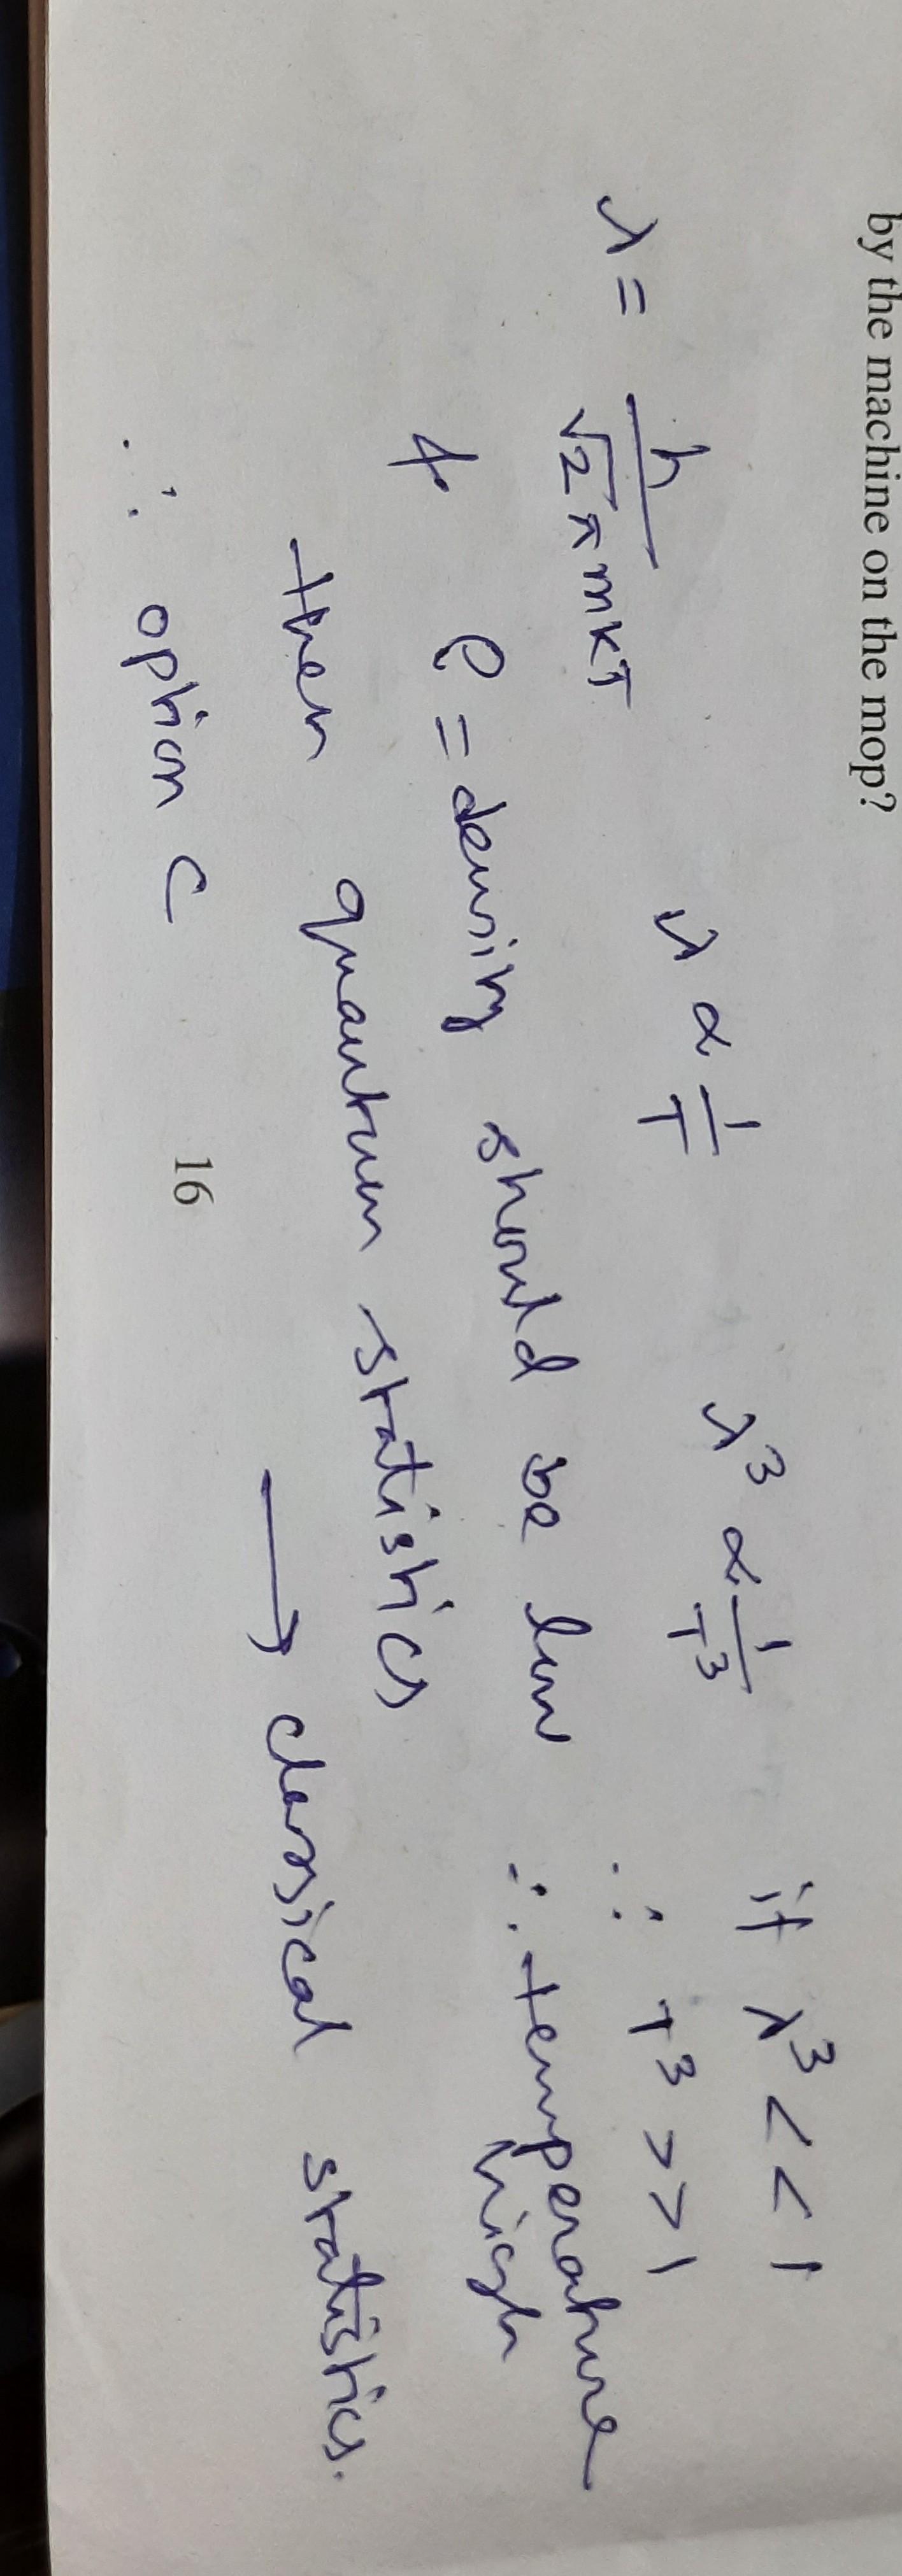 by the machine on the mop?
λ = h / √2 π mKT   λ ∝ 1/T   λ³ ∝ 1/T³   if λ³ < < 1
∴ T³ > > 1
& ρ = density should be low ∴ temperature
high
then quantum statistics → classical statistics.
∴ option C
16